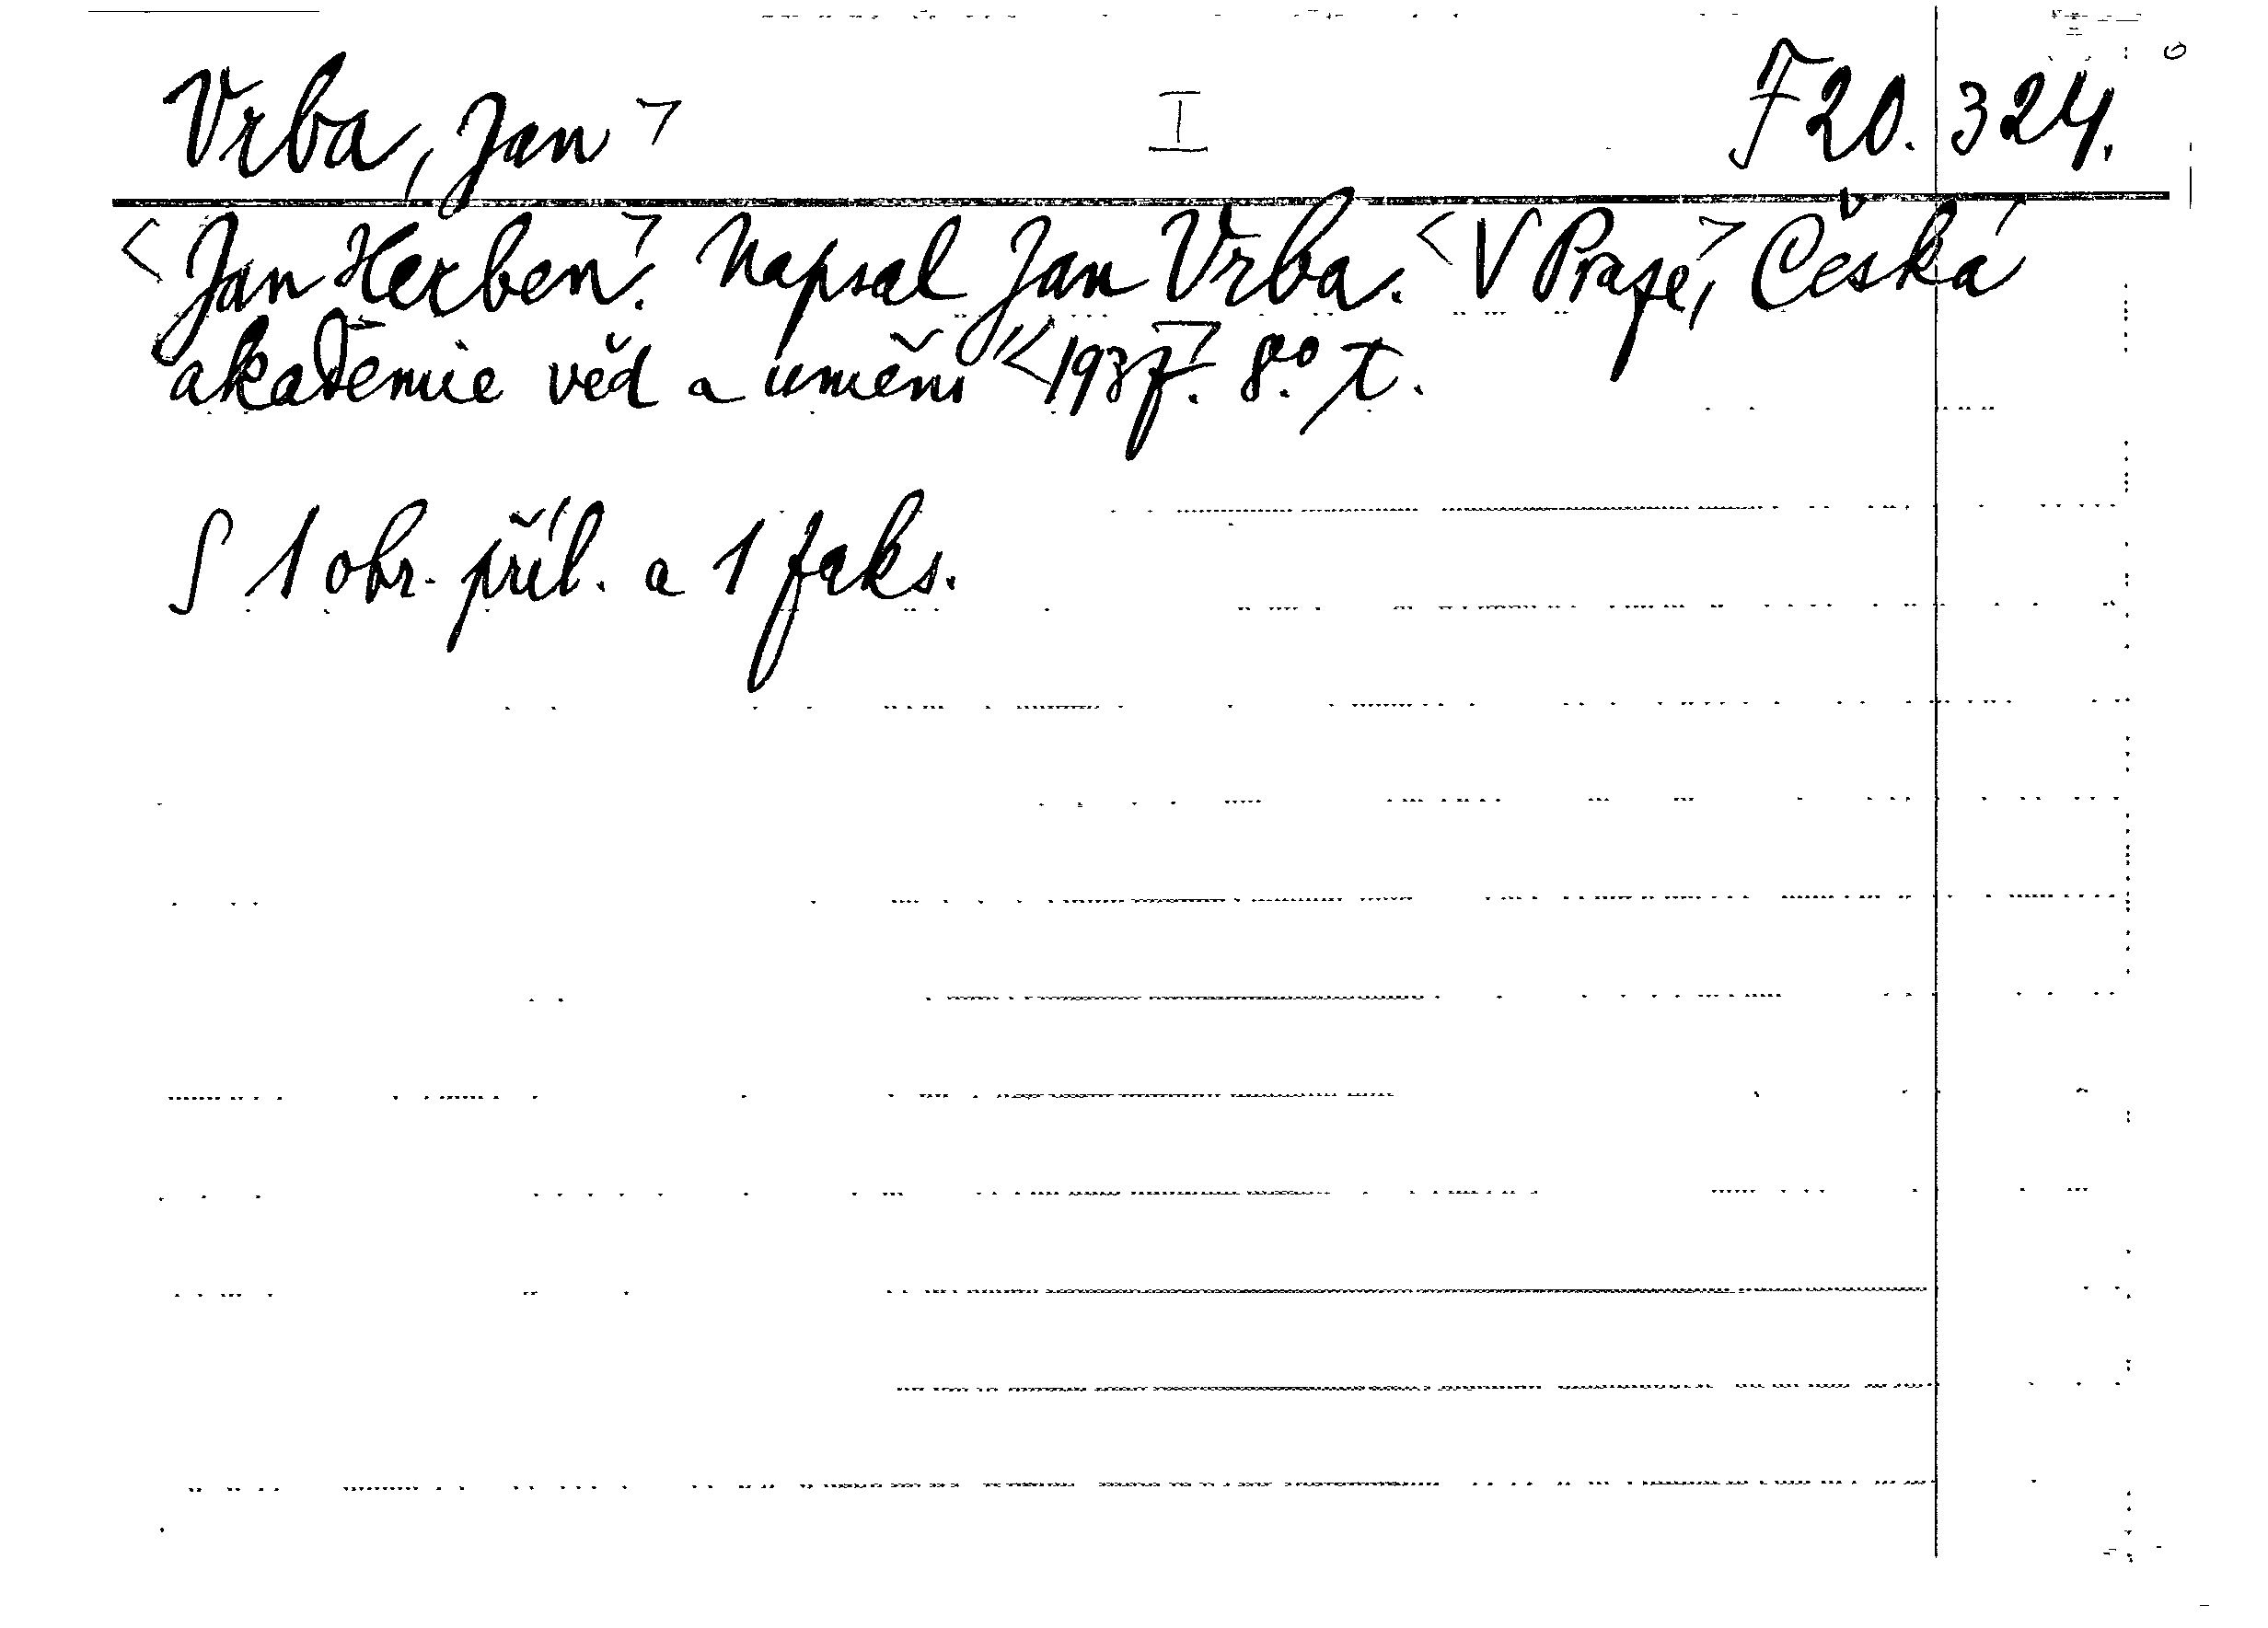 Vrba, Jan ⟩ I F 20.324.
⟨Jan Herben⟩. Napsal Jan Vrba. ⟨V Praze,⟩ Česká
akademie věd a umění ⟨1937⟩. 8.° T.
S 1 obr. příl. a 1 faks.